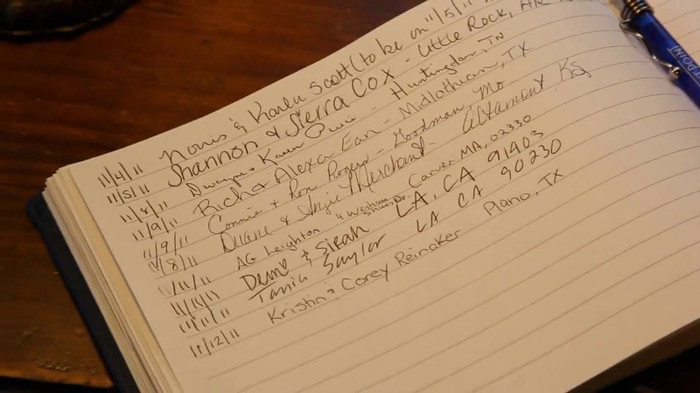 11/4/11 Norris & Karen Scott (to be on 11/5/11
11/5/11 Shannon & Sierra Cox - Little Rock, AR
11/8/11 Dwayne & Karen - Huntingdon, TN
11/9/11 Rich & Alexa Earl - Midlothian, TX
11/9/11 Connie + Rose Rogers - Goodman, Mo
11/8/11 Duane & Angie Merchant - Altamont KS
11/11/11 AG Leighton Dr. Carver MA, 02330
11/11/11 Demo & Sirah LA, CA 91403
11/11/11 Tania Saylor LA CA 90230
11/12/11 Kristin & Corey Reinaker Plano, TX